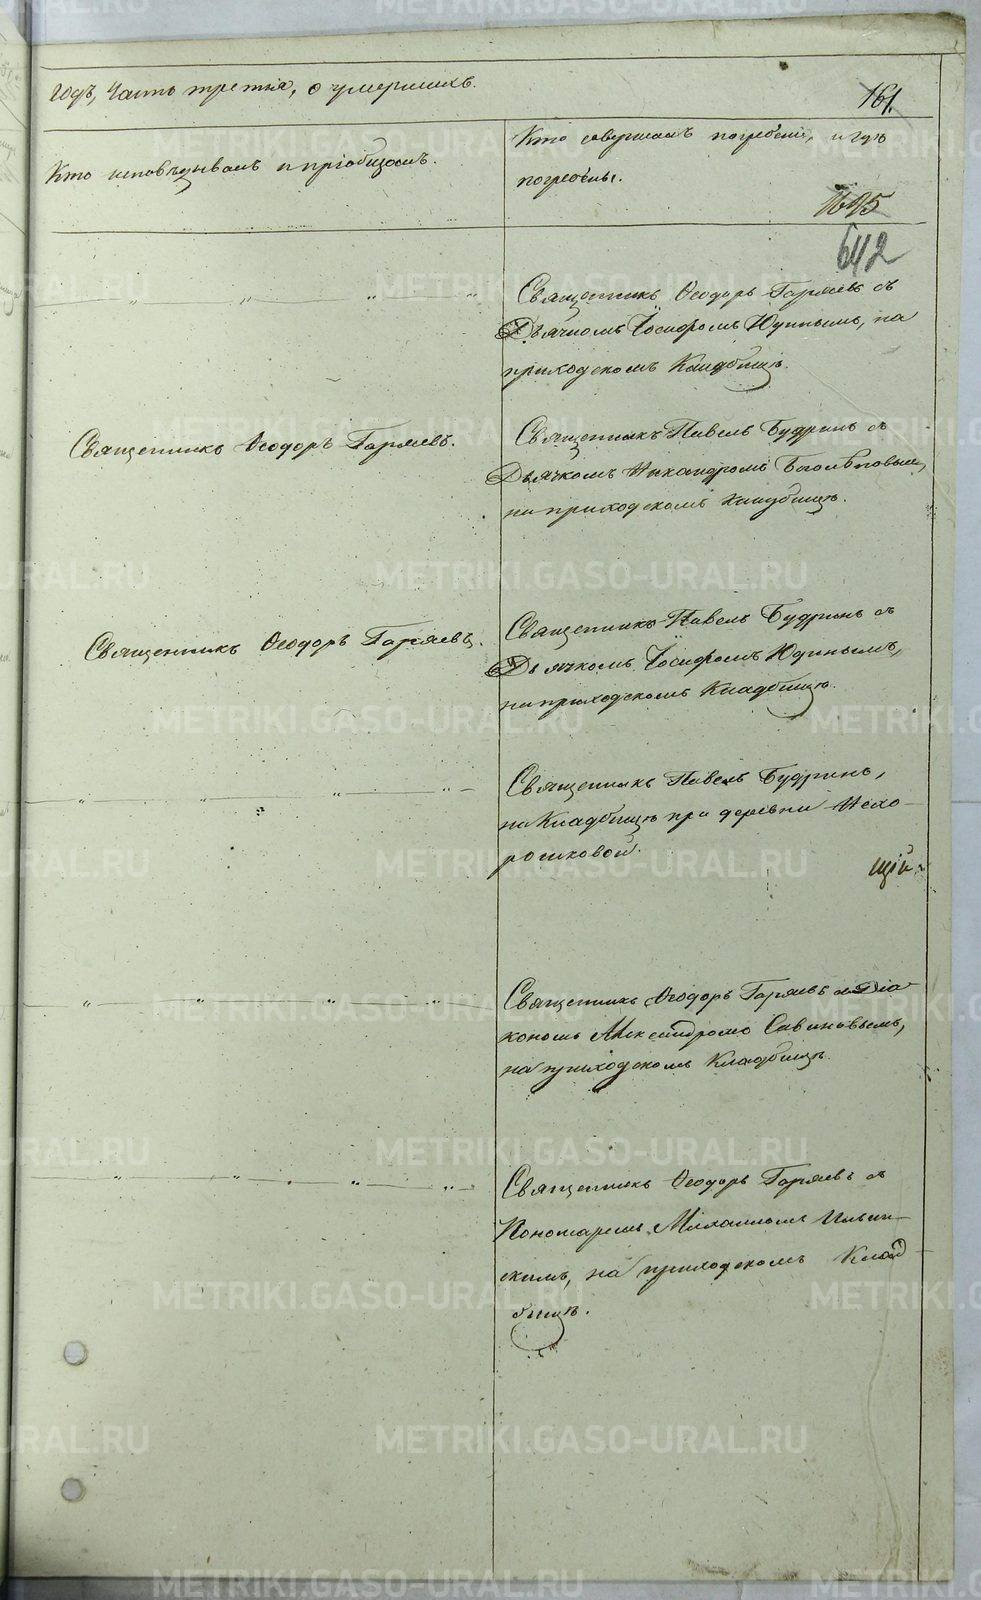 годъ, Часть третья, о умершихъ.
161.
Кто исповѣдывалъ и пріобщалъ.
Кто совершалъ погребеніе, и гдѣ
погребены.
1695
642
Священникъ Ѳеодоръ Гаряевъ съ
Дьячкомъ Іосифомъ Юдинымъ, на
приходскомъ Кладбищѣ.
Священникъ Ѳеодоръ Гаряевъ.
Священникъ Павелъ Будринъ съ
Дьячкомъ Никандромъ Боголѣповымъ,
на приходскомъ кладбищѣ.
Священникъ Ѳеодоръ Гаряевъ.
Священникъ Павелъ Будринъ съ
Дьячкомъ Іосифомъ Юдинымъ,
на приходскомъ Кладбищѣ.
Священникъ Павелъ Будринъ,
на Кладбищѣ при деревни Нехо-
рошковой.
щій
Священникъ Ѳеодоръ Гаряевъ съ Діа-
кономъ Александромъ Савиновымъ,
на приходскомъ Кладбищѣ.
Священникъ Ѳеодоръ Гаряевъ съ
Пономаремъ Михаиломъ Ильин-
скимъ, на приходскомъ Клад-
бищѣ.
METRIKI.GASO-URAL.RU